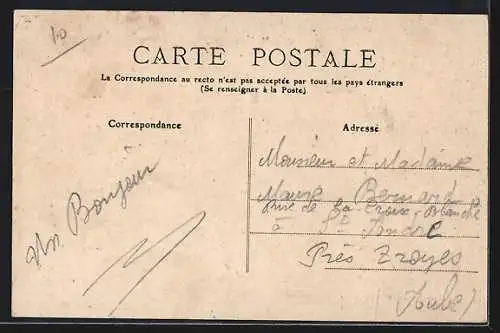 10
CARTE POSTALE
La Correspondance au recto n'est pas acceptée par tous les pays étrangers
(Se renseigner à la Poste)
Correspondance
Adresse
Un Bonjour
Monsieur et Madame
Bernard
rue de la Croix-Blanche
à St André
Près Troyes
(Aube)